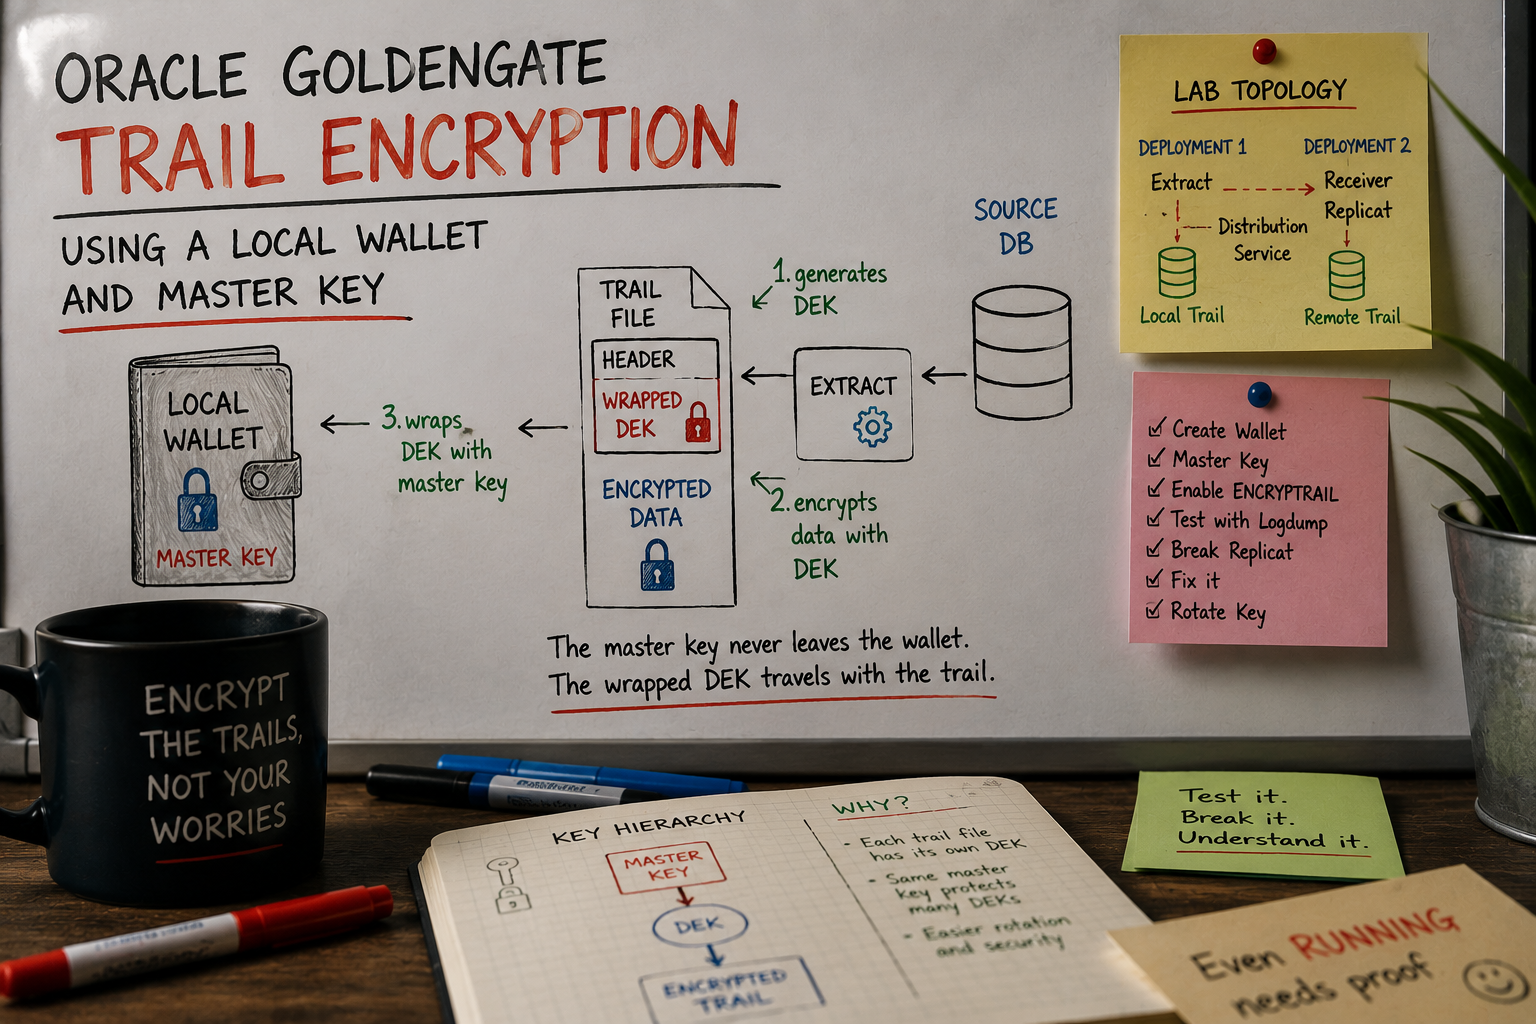 ORACLE GOLDENGATE
TRAIL ENCRYPTION
USING A LOCAL WALLET
AND MASTER KEY
LOCAL
WALLET
MASTER KEY
3. wraps
DEK with
master key
TRAIL
FILE
HEADER
WRAPPED
DEK
ENCRYPTED
DATA
1. generates
DEK
EXTRACT
2. encrypts
data with
DEK
SOURCE
DB
The master key never leaves the wallet.
The wrapped DEK travels with the trail.
LAB TOPOLOGY
DEPLOYMENT 1
DEPLOYMENT 2
Extract
Receiver
Replicat
Distribution
Service
Local Trail
Remote Trail
Create Wallet
Master Key
Enable ENCRYPTRAIL
Test with Logdump
Break Replicat
Fix it
Rotate Key
ENCRYPT
THE TRAILS,
NOT YOUR
WORRIES
KEY HIERARCHY
MASTER
KEY
DEK
ENCRYPTED
TRAIL
WHY?
- Each trail file
has its own DEK
- Same master
key protects
many DEKs
- Easier rotation
and security
Test it.
Break it.
Understand it.
Even RUNNING
needs proof